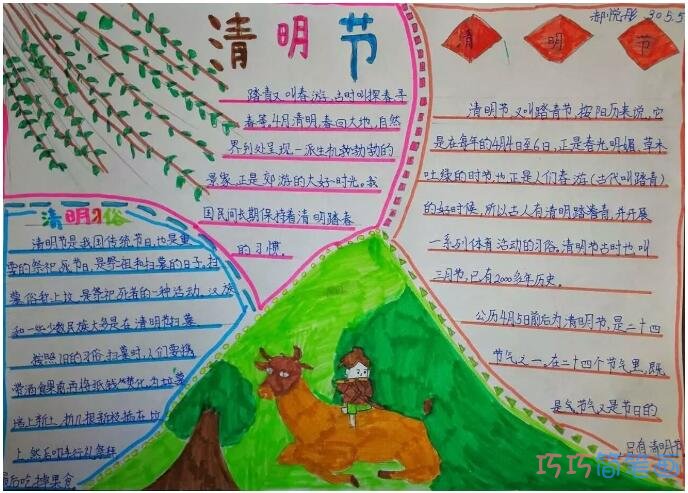 清明节
郝悦彤 305.5
清 明 节
踏青又叫春游,古时叫探春寻
春等。4月清明,春回大地,自然
界到处呈现一派生机勃勃的
景象,正是郊游的大好时光。我
国民间长期保持着清明踏春
的习惯。
清明习俗
清明节是我国传统节日,也是重
要的祭祀节日,是祭祖和扫墓的日子。扫
墓俗称上坟,是祭祀死者的一种活动。汉族
和一些少数民族大多是在清明节扫墓。
按照旧的习俗,扫墓时,人们要携
带酒食果
培上新土,折几根
上,然后叩
后吃掉果食。
清明节,又叫踏青节,按阳历来说,它
是在每年的4月4日至6日,正是春光明媚,草木
吐绿的时节,也正是人们春游(古代叫踏青)
的好时候,所以古人有清明踏青,并开展
一系列体育活动的习俗。清明节古时也叫
三月节,已有2000多年历史。
公历4月5日前后为清明节,是二十四
节气之一,在二十四个节气里,既
是气节气又是节日的
只有清明节
巧巧简笔画